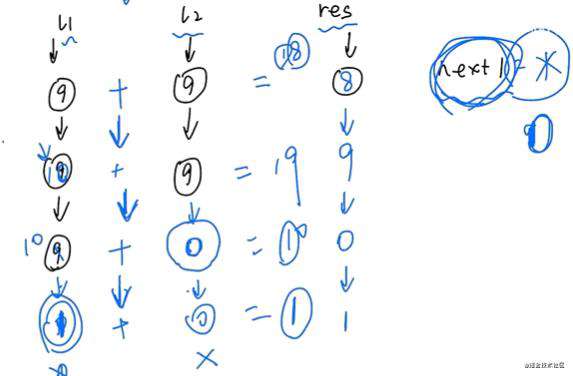 l1 l2 res
18
9 + 9 = 8 next1
0
10 + 9 = 19 9
10 9 + 0 = 10 0
1 + 0 = 1 1
@掘金技术社区